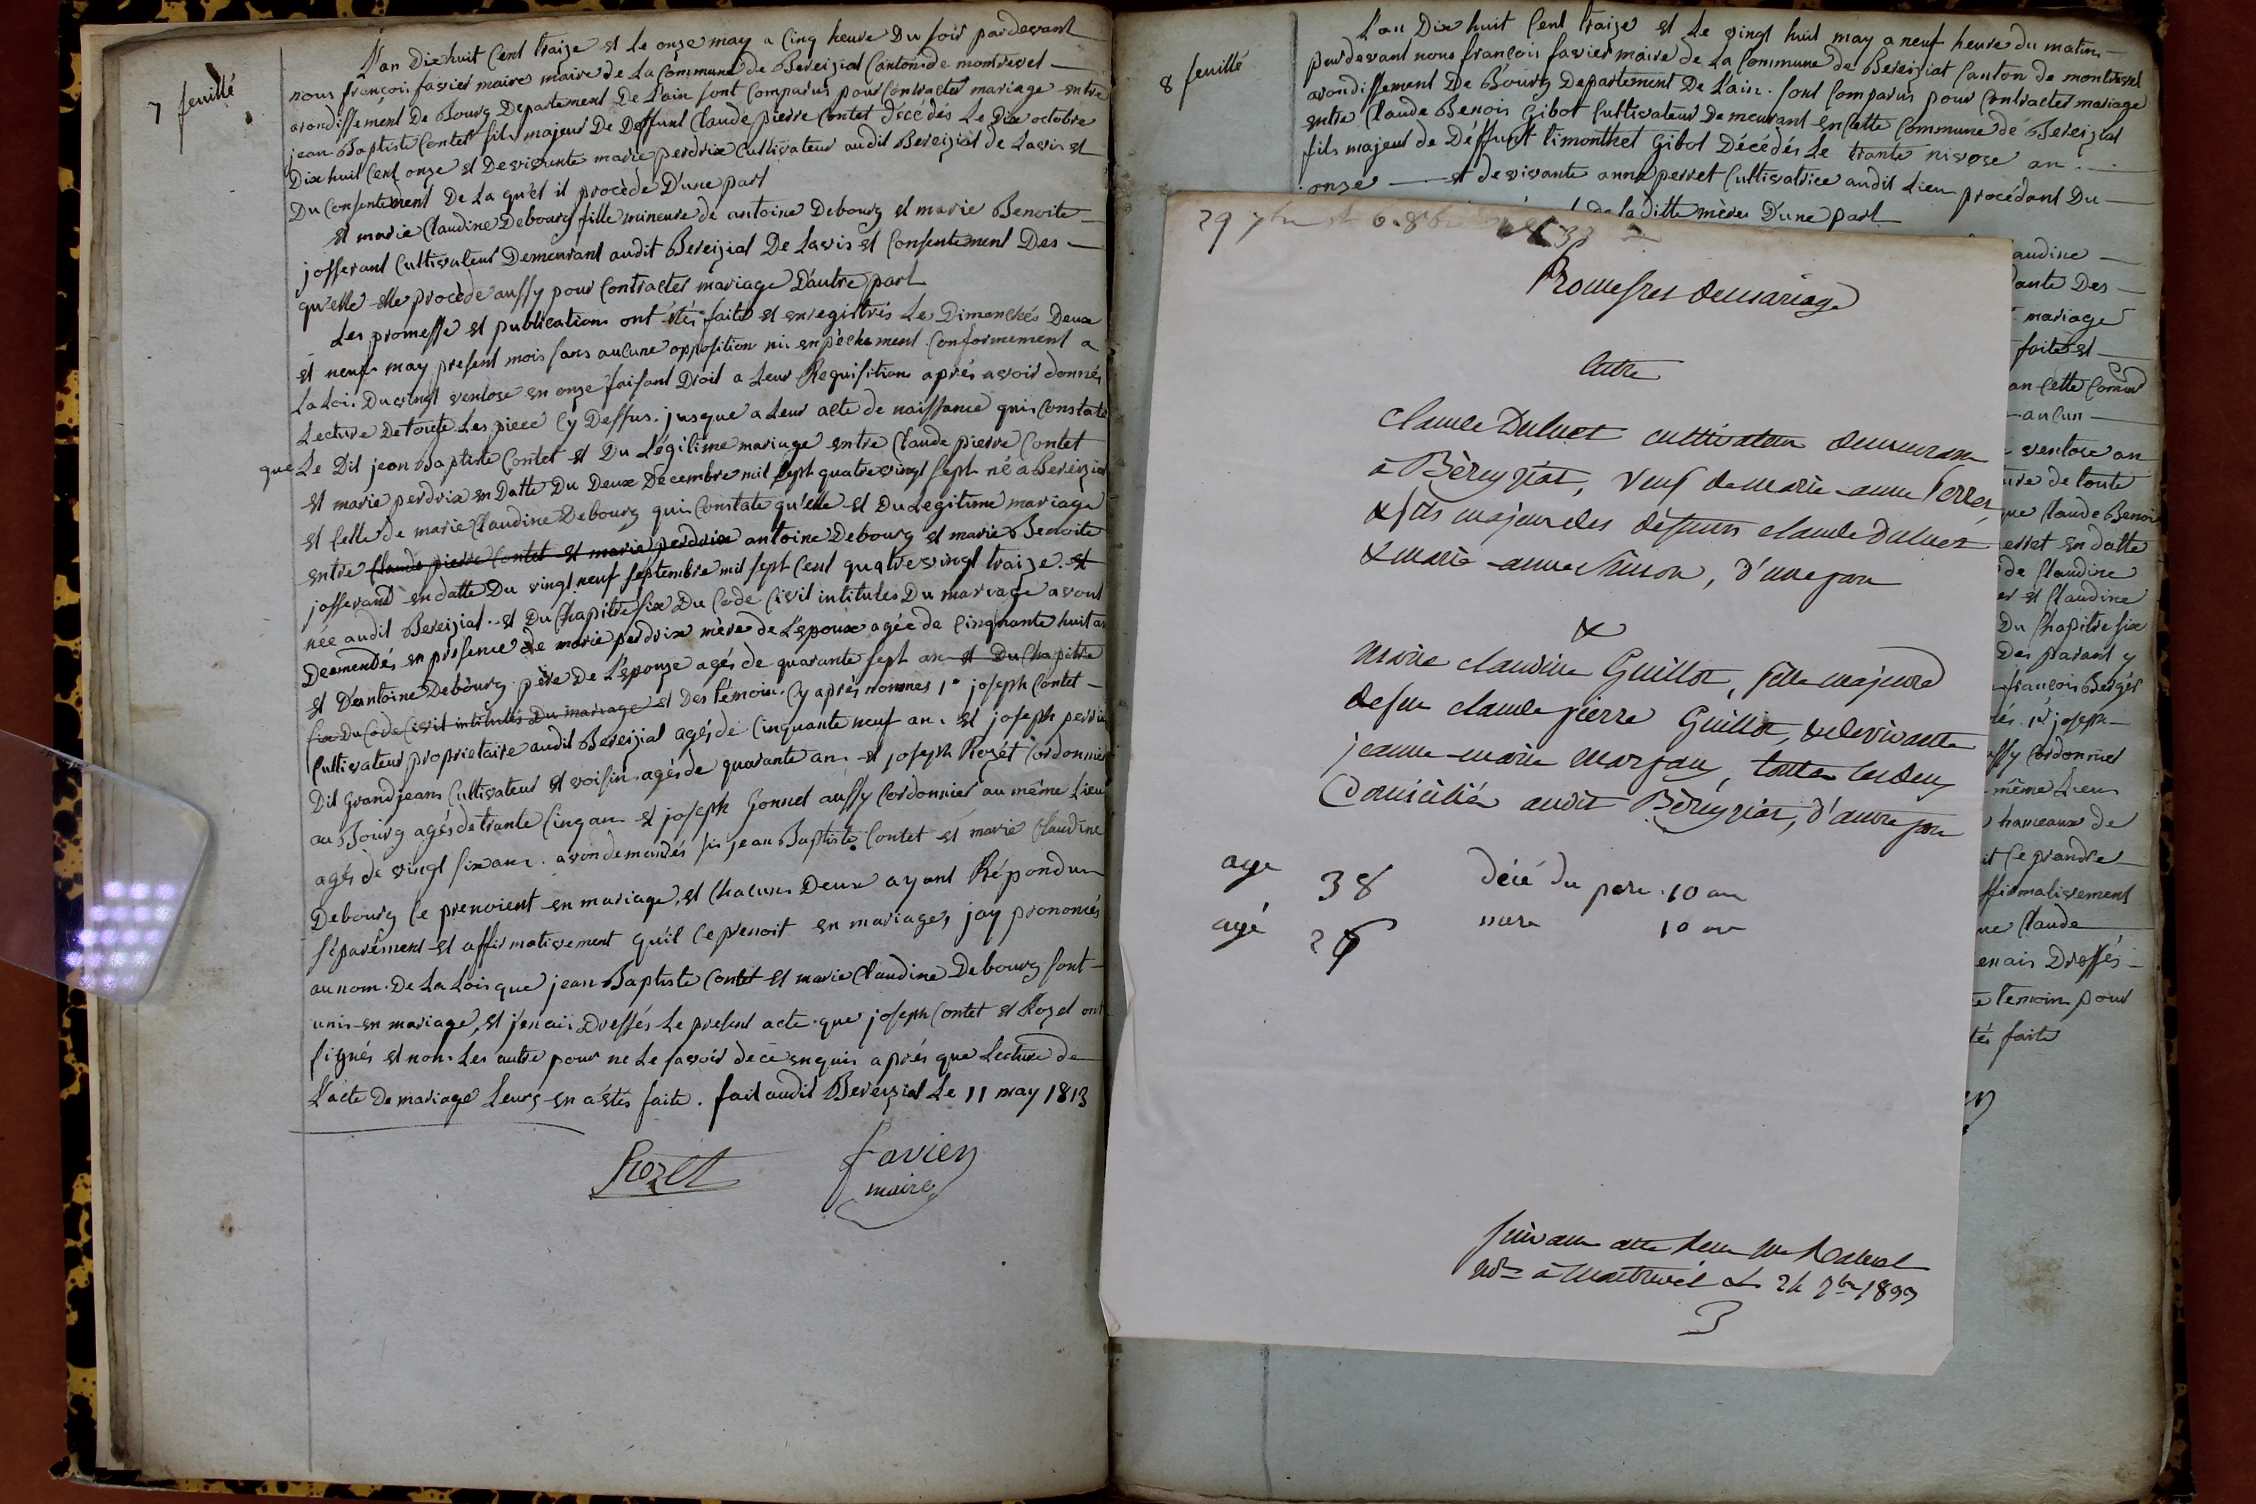 7 feuillé
L'an Dix huit Cent traize et Le onze may a Cinq heure Du soir pardevant
nous françois favier maire maire de La Commune de Bereiziat Canton de montrevel
arondissement De Bourg Departement De L'ain sont Comparus pour Contracter mariage entre
jean Baptiste Contet fils majeur De Deffunt Claude pierre Contet décédés Le Dix octobre
Dix huit Cent onze et De vivante marie perdrix Cultivateur audit Bereiziat de Lavis et
Du Consentement De La qu'el il procède D'une part
et marie Claudine Debourg fille mineure de antoine Debourg et marie Benoite
josserand Cultivateur Demeurant audit Bereiziat De Lavis et Consentement Des
qu'elle elle procède aussy pour Contracter mariage D'autre part
Les promesse et publication ont étés faite et enregistrés Le Dimanchés Deux
et neuf may present mois sans aucune opposition ni enpéchement Conformement a
La Loi Du vingt ventose en onze faisant Droit a Leur Requisition aprés avoir donnés
Lecture De toute Les piece Cy Dessus jusque a Leur acte de naissance qui Constate
que Le Dit jean Baptiste Contet et Du Légitime mariage entre Claude pierre Contet
et marie perdrix en Datte Du Deux Decembre mil sept quatre vingt sept né a Bereiziat
et Celle de marie Claudine Debourg qui Constate qu'elle et Du Legitime mariage
entre Claude pierre Contet et marie perdrix antoine Debourg et marie Benoite
josserand en datte Du vingt neuf septembre mil sept Cent quatre vingt traize et
née audit Bereiziat et Du Chapitre six Du Code Civil intitulés Du mariage avont
Demendés en présence de marie perdrix mère de L'epoux agée de Cinquante huit an
et D'antoine Debourg père De L'épouze agés de quarante sept an et Du Chapitre
six Du Code Civil intitulés Du mariage et Des témoin Cy aprés nommes 1° joseph Contet
Cultivateur proprietaire audit Bereiziat agés de Cinquante neuf an et joseph perdrix
Dit Grandjean Cultivateur et voisin agés de quarante an et joseph Rozet Cordonnier
au Bourg agés de trante Cinq an et joseph Gonnet aussy Cordonnier au même Lieu
agés de vingt six an avon demandés si jean Baptiste Contet et marie Claudine
Debourg Ce prenoient en mariage et Chacun Deux ayant Répondu
séparément et affirmativement qu'il Ce prenoit en mariage, jay prononcés
au nom De La Lois que jean Baptiste Contet et marie Claudine Debourg sont
unis en mariage, et j'en ai Dressés Le présent acte que joseph Contet et Rozet ont
signés et non Les autre pour ne Le savoir de ce enquis aprés que Lecture de
L'acte De mariage Leurs en a étés faite. fait audit Bereiziat Le 11 may 1813
Rozet
favier
maire
8 feuille
L'an Dix huit Cent traize et Le vingt huit may a neuf heure du matin
pardevant nous françois favier maire de La Commune de Bereiziat Canton de montrevel
arondissement De Bourg Departement De L'ain sont Comparus pour Contracter mariage
entre Claude Benois Gibot Cultivateur Demeurant en Cette Commune de Bereiziat
fils majeur de Déffunt timonthet Gibot Décédés Le trante nivose an
onze et de vivante anne perret Cultivatrice audit Lieu procédant Du
de laditte mère D'une part
audine
ante Des
mariage
faite et
an Cette Comun
aucun
ventose an
ure de toute
que Claude Benoi
erret en datte
de Claudine
er et Claudine
Du Chapitre six
Des parant y
françois Berger
és 1° joseph
ussy Cordonnier
même Lieu
hameaux de
it Ce prandre
ffirmativement
ne Claude
enais Dressés
e temoin pour
tés faite
29 7bre et 6 8bre 33
Promesses de mariage
Entre
Claude Duluet cultivateur demeurant
à Béreyziat, veuf de marie-anne Perret
& fils majeur des défunts claude Duluet
& marie-anne , d'une part
&
Marie claudine Guillot, fille majeure
de feu claude pierre Guillot, & de vivante
jeanne-marie marjany, toutes les deux
Domiciliés audit Béreyziat, d'autre part
age 38 décé du pere 10 an
agé 26 mere 10 an
Suivant acte reçu Me
Nre à Montrevel le 24 7bre 1833